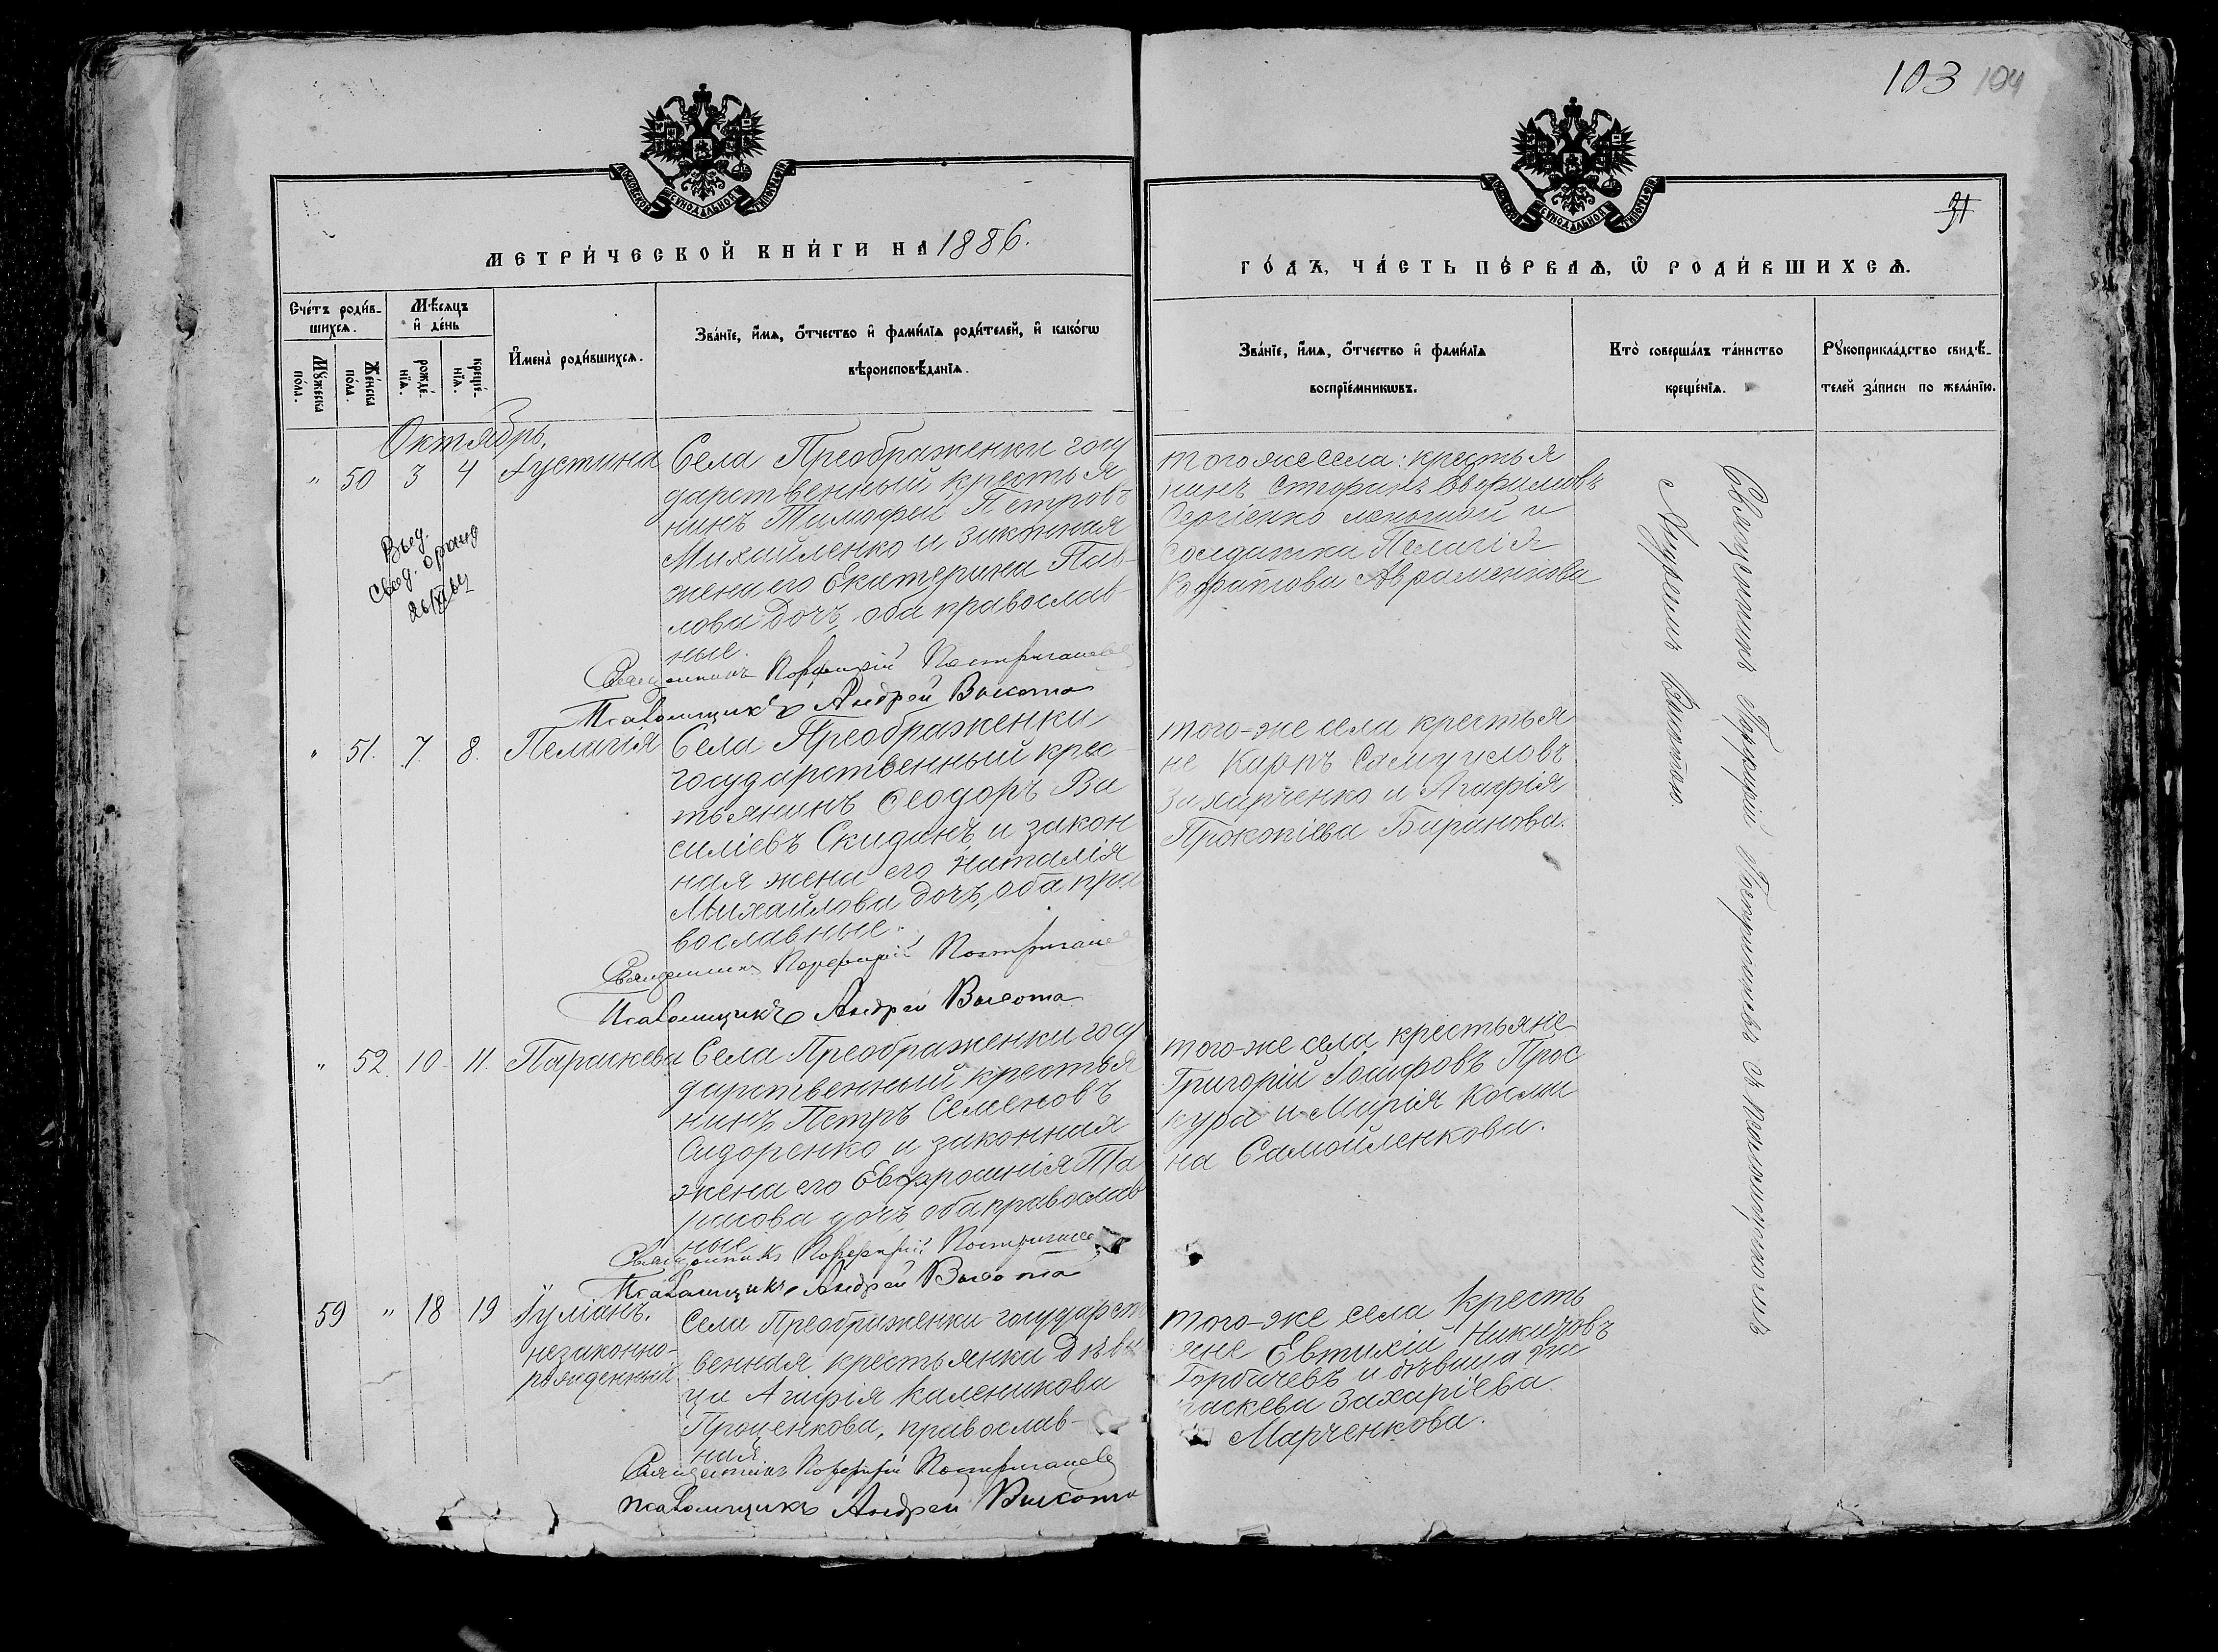 103 104
МОСКОВСКОЙ СѴНОДАЛЬНОЙ ТИПОГРАФІИ
МОСКОВСКОЙ СѴНОДАЛЬНОЙ ТИПОГРАФІИ
МЕТРИ́ЧЕСКОЙ КНИ́ГИ НА 1886.
ГО́ДЪ, ЧА́СТЬ ПЕ́РВАѦ, Ѿ РОДИ́ВШИХСѦ.
Сче́тъ роди́в-
шихсѧ.
Мꙋжеска по́ла.
Же́нска по́ла.
Мѣ́сѧцъ
и҆ де́нь
рожде́-
нїѧ.
креще́-
нїѧ.
И҆мена̀ роди́вшихсѧ.
Зва́нїе, и҆́мѧ, ѻ҆́тчество и҆ фами́лїѧ роди́телей, и҆ како́гѡ
вѣроисповѣ́данїѧ.
Зва́нїе, и҆́мѧ, ѻ҆́тчество и҆ фами́лїѧ
воспрїе́мникѡвъ.
Кто̀ соверша́лъ та́инство
креще́нїѧ.
Рꙋкоприкла́дство свидѣ́-
телей за́писи по жела́нїю.
Октябрь.
" 50 3 4 Іустина
Села Преображенки госу
дарственный крестья
нинъ Тимофей Петровъ
Михайленко и законная
жена его Екатерина Пав-
лова дочь, оба православ-
ные.
Священникъ Порфирій
Псаломщикъ Андрей Высота
того же села: крестья
нинъ
Сергіенко меньшой и
солдатка Пелагія
Авраменкова
Выд.
свед.
" 51. 7. 8. Пелагія
Села Преображенки
государственный крес-
тьянинъ Ѳеодоръ Ва
силіевъ Скиданъ, и закон
ная жена его Наталія
Михайлова дочь, оба пра
вославные.
Священникъ Порфирій
Псаломщикъ Андрей Высота
того-же села крестья
не Карпъ Самуиловъ
Захарченко и Агафія
Прокопіева Баранова.
" 52. 10 11. Параскева
Села Преображенки госу
дарственный крестья
нинъ Петръ Семеновъ
Сидоренко и законная
жена его Евфросинія Та
расова дочь оба православ
ные
Священникъ Порфирій
Псаломщикъ Андрей Высота
того-же села крестьяне
Григорій Іосифовъ Прос
кура и Марія Косми
на Самойленкова.
59 " 18 19 Іуліанъ.
незаконно-
рожденный
Села Преображенки государст
венная крестьянка дѣви
ца Агафія Каленикова
Проценкова, православ-
ная
Священникъ Порфирій
Псаломщикъ Андрей Высота
того-же села кресть
яне Евтихій Никитовъ
Горбачевъ и дѣвица Па
раскева Захаріева
Марченкова.
Священникъ Порфирій съ псаломщикомъ
Андреемъ Высотою.